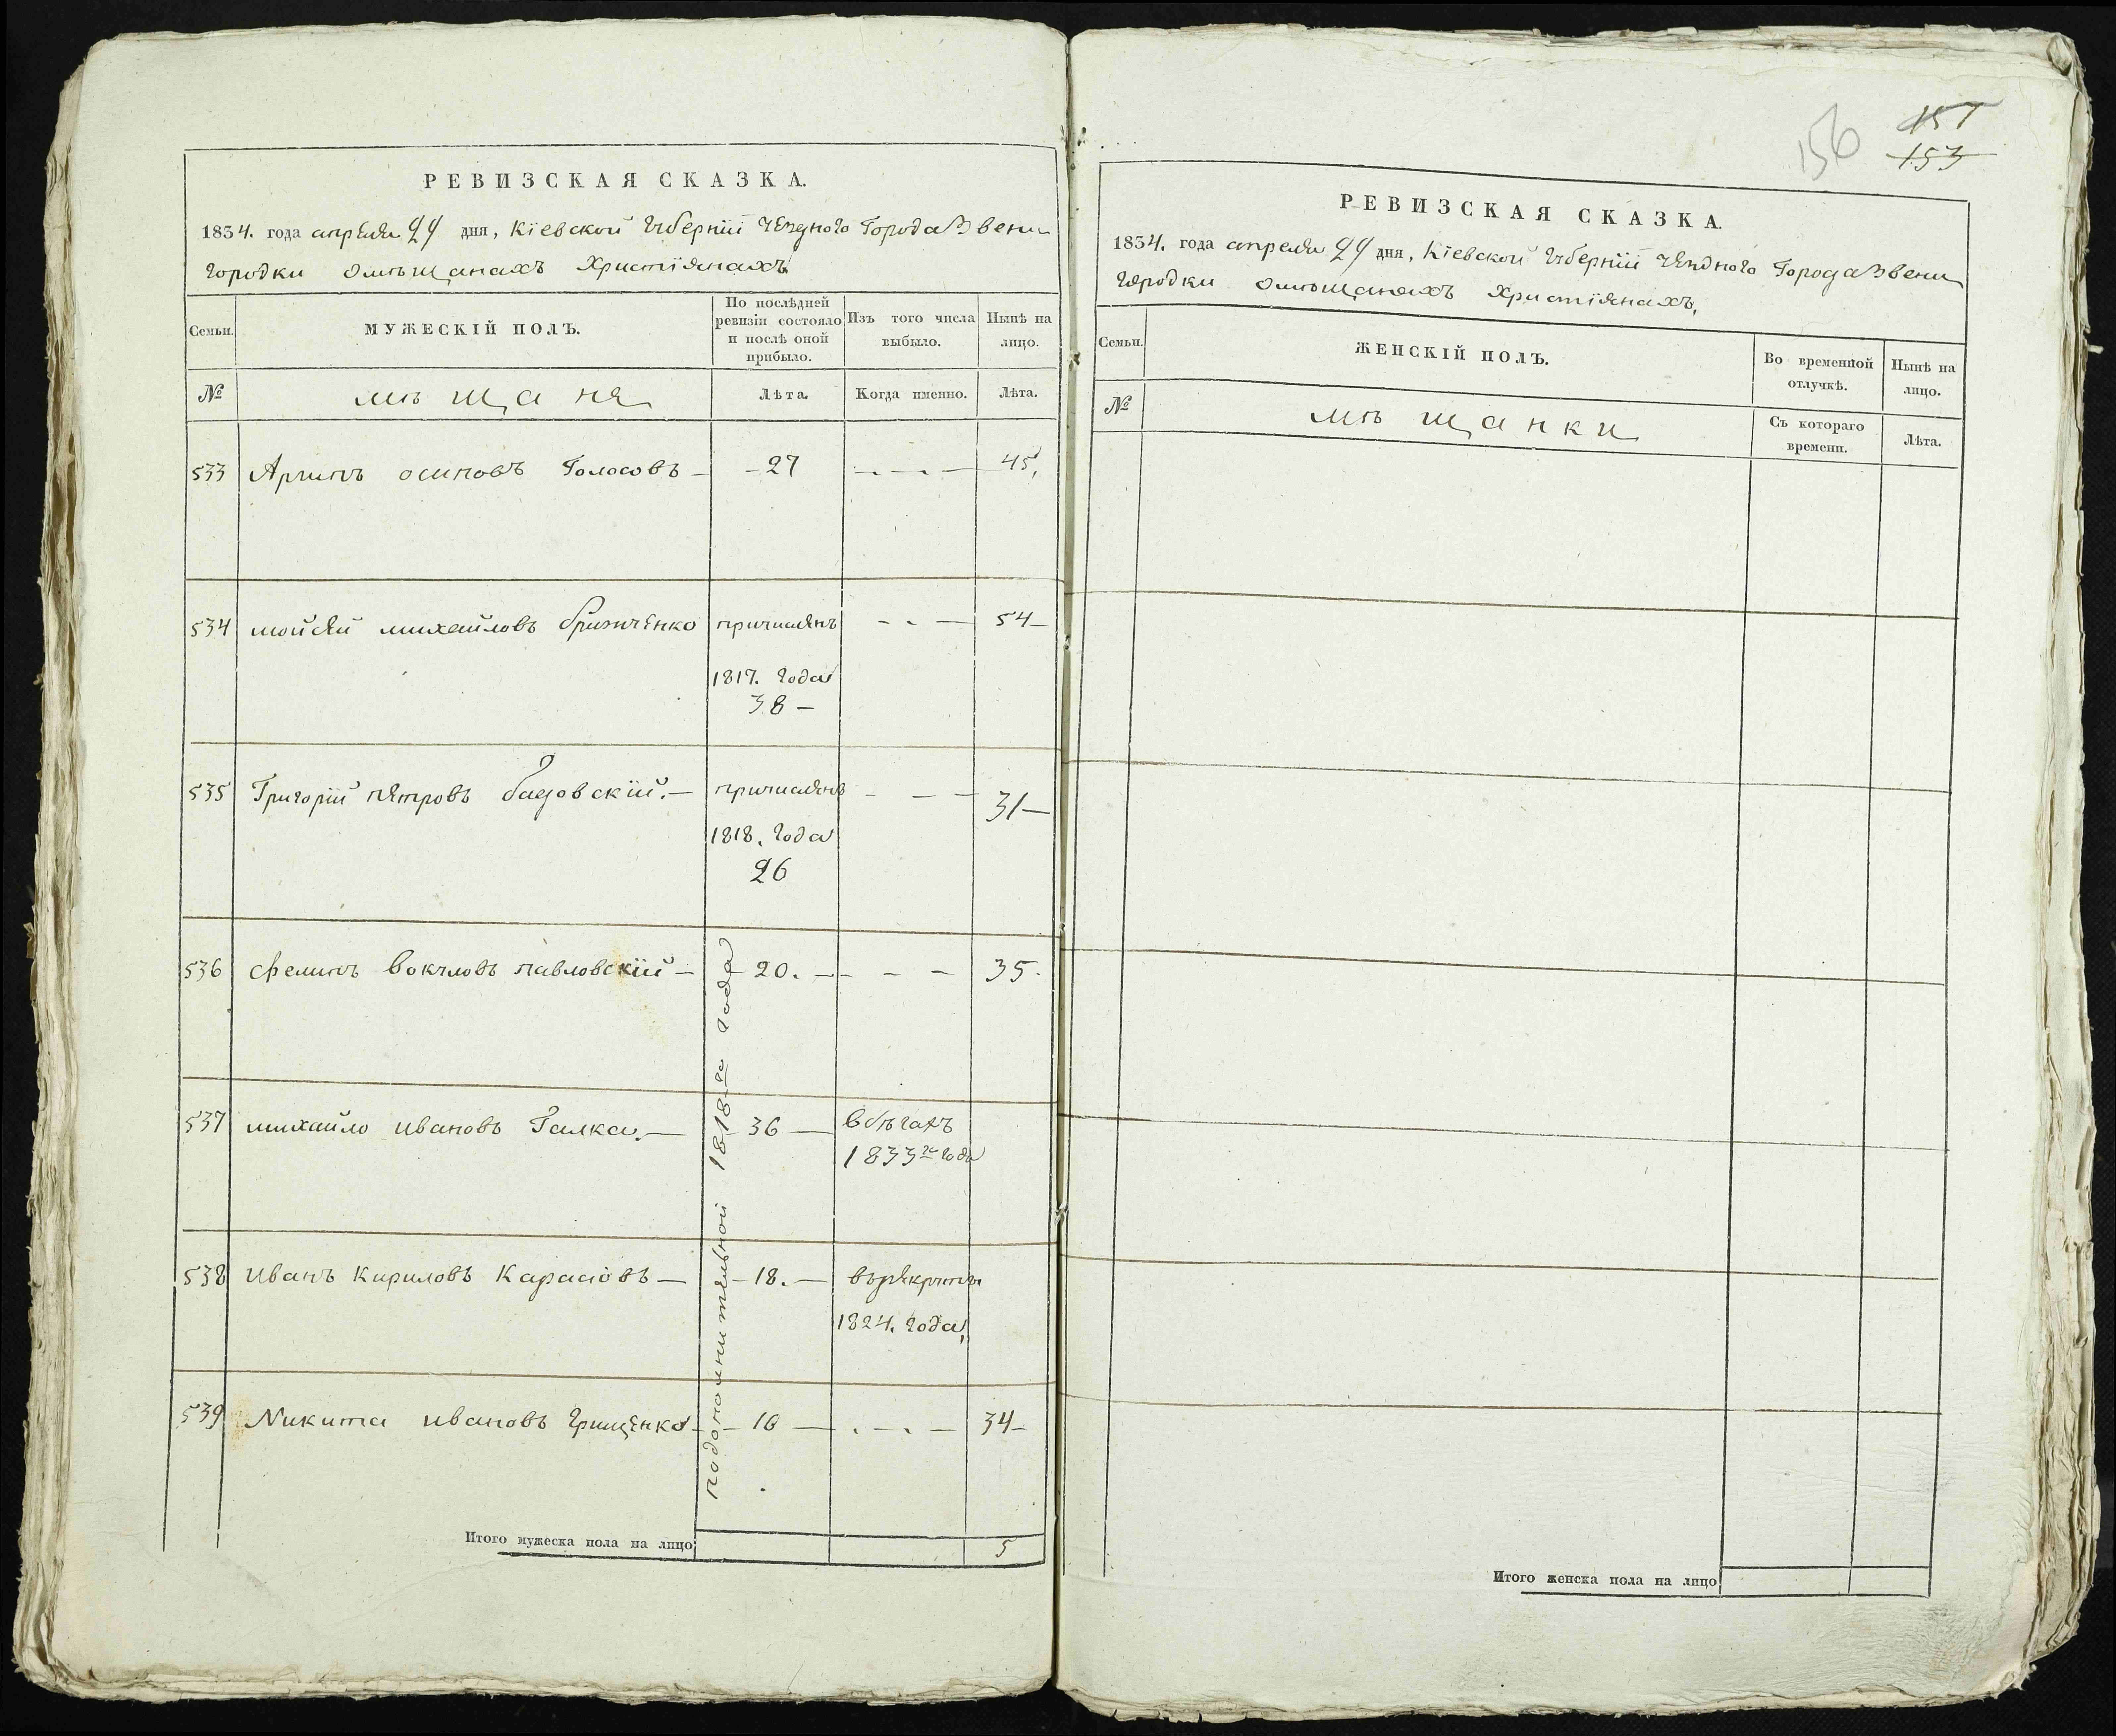 РЕВИЗСКАЯ СКАЗКА.
1834. года апреля 29 дня, Кіевской Губерніи уезднаго Города Звени
городки о мѣщанахъ Христіянахъ
Семьи. МУЖЕСКІЙ ПОЛЪ. По послѣдней ревизіи состояло и послѣ оной прибыло. Изъ того числа выбыло. Нынѣ на лицо.
№ мѣщаня Лѣта. Когда именно. Лѣта.
533 осиповъ Голосовъ – – 27 – – – 45,
534 мойсей михайловъ причисленъ – – – 54 –
1817. года
38 –
535 Григорій петровъ причисленъ – – – 31 –
1818. года
26
536 павловскій – – 20. – – – – 35.
537 михайло ивановъ Галка. – – 36 – въ бѣгахъ
1833го года
538 иванъ кириловъ Карасіовъ – – 18. – въ рекруты
1824. года,
539 Никита ивановъ Грищенко – – 16 – . – . – 34 –
по дополнительной 1818го года
Итого мужеска пола на лицо 5
156
151
153
РЕВИЗСКАЯ СКАЗКА.
1834. года апреля 29 дня, Кіевской Губерніи уезднаго Города Звени
городки о мѣщанахъ Христіянахъ,
Семьи. ЖЕНСКІЙ ПОЛЪ. Во временной отлучкѣ. Нынѣ на лицо.
№ мѣщанки Съ котораго времени. Лѣта.
Итого женска пола на лицо